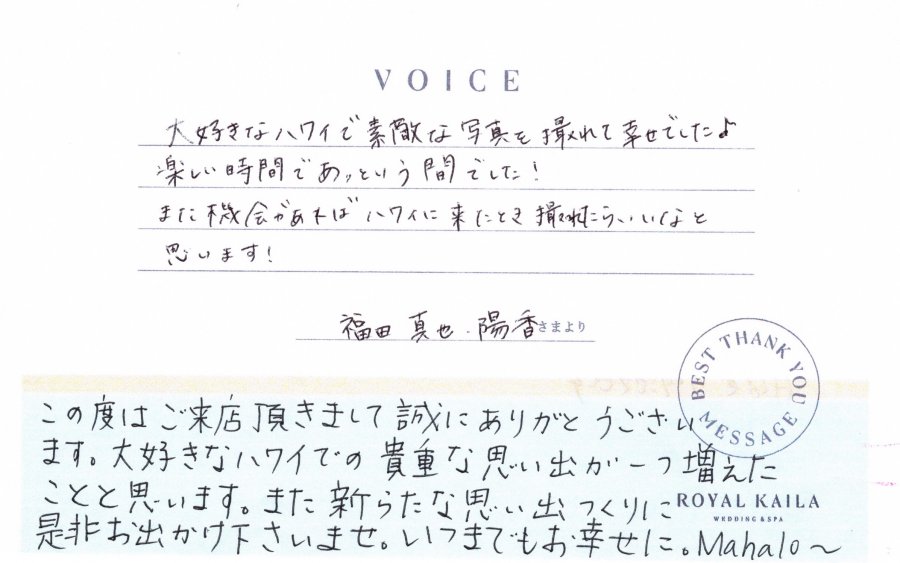 VOICE
大好きなハワイで素敵な写真を撮れて幸せでした♪
楽しい時間であっという間でした!
また機会があればハワイに来たとき撮れたらいいなと
思います!
福田真也・陽香さまより
BEST THANK YOU MESSAGE
この度はご来店頂きまして誠にありがとうござい
ます。大好きなハワイでの貴重な思い出が一つ増えた
ことと思います。また新らたな思い出つくりに
ROYAL KAILA
WEDDING & SPA
是非お出かけ下さいませ。いつまでもお幸せに。Mahalo~